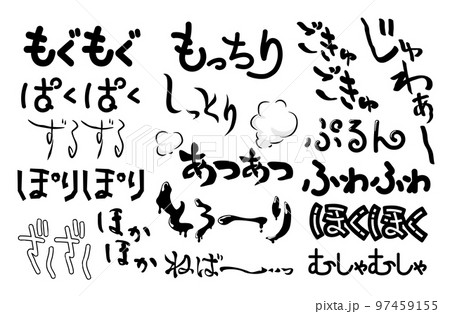 もぐもぐ
ぱくぱく
ずるずる
ぽりぽり
ざくざく
ほかほか
もっちり
しっとり
あつあつ
とろ〜り
ねば〜っ
ごきゅごきゅ
じゅわぁー
ぷるん
ふわふわ
ほくほく
むしゃむしゃ
pixta.jp - 97459155